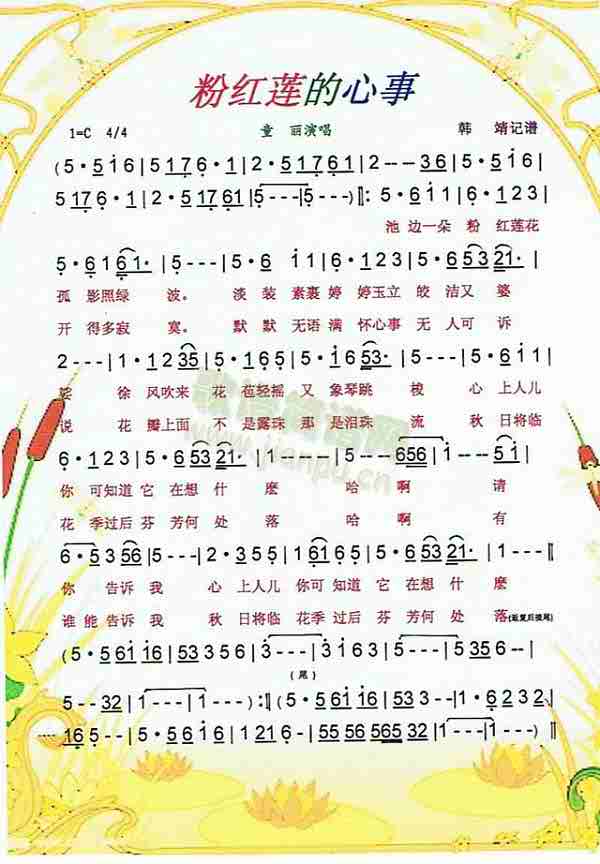 粉红莲的心事
1=C 4/4 童 丽演唱 韩 靖记谱
(5·5i6|5176·1|2·5176i|2·2---36|5·5i6|
5176·1|2·5176i|5---|5---)‖:5·6i1|6·123|
池边一朵 粉 红莲花
5·616i·|5---|5·6 i1|6·123|5·65321·|
孤 影照绿 波。 淡 装 素裹 婷 婷玉立 皎 洁又 婆
开 得多寂 寞。 默 默 无语 满 怀心事 无 人可 诉
2---|1·1235|5·165|5·1653·|5·356i|
娑 徐 风吹来 花 苞轻摇 又 象琴跳 梭 心 上人儿
说 花 瓣上面 不 是露珠 那 是泪珠 流 秋 日将临
6·123|5·653212|5---|5---656|1·---5i|
你 可知道 它 在想 什 麽 哈 啊 请
花 季过后 芬 芳何 处 落 哈 啊 有
6·5356|5---|2·235|16165|5·65321·|1---‖
你 告诉 我 心 上人儿 你可 知道 它 在想 什 麽
谁能 告诉 我 秋 日将临 花季 过后 芬 芳何 处 落(返复后接尾)
(5·561i6|533356|3---|3---163|5---|5---535|
(尾)
5--32|1---|1---):‖(5·561i6|53335|2--·6|5-321612|
165--5|153·5|12356·|55--565532|1---|1---)‖
www.jianpu.cn